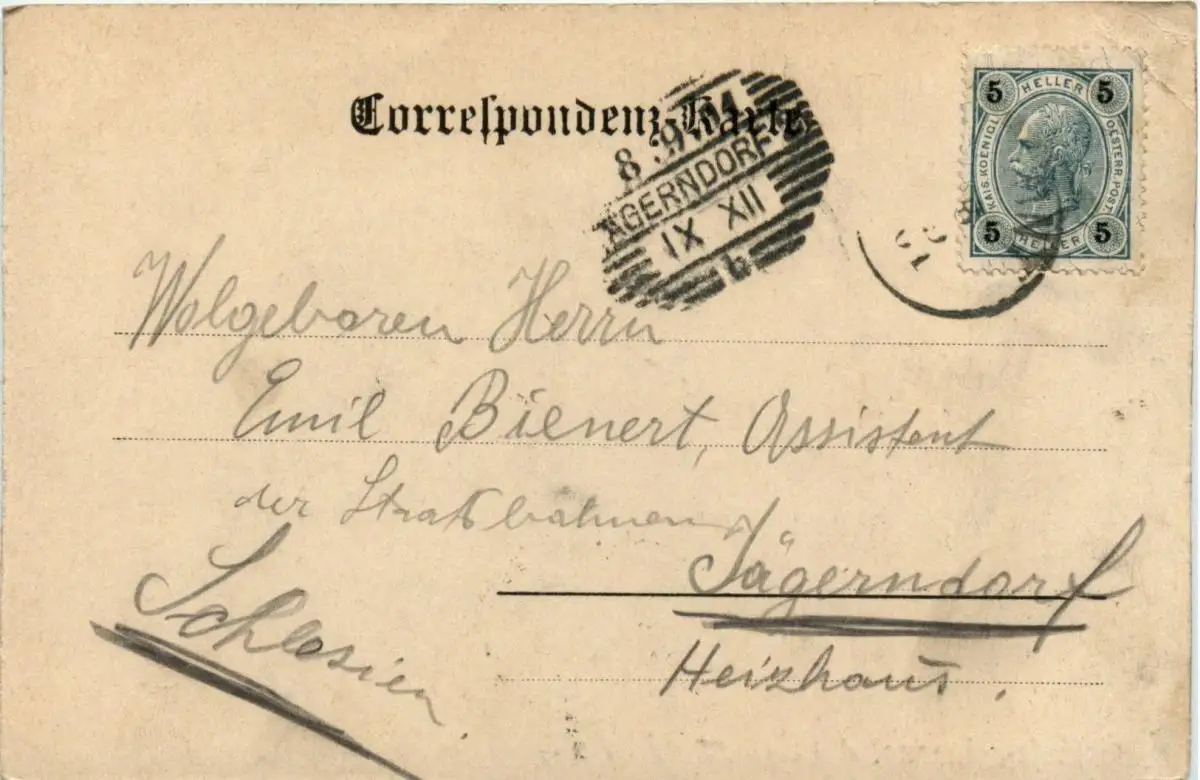 Correspondenz-Karte
HELLER
5 5
KAIS. KOENIGL. OESTERR. POST.
5 5
HELLER
8
JÄGERNDORF
IX XII
b
Wolgeboren Herrn
Emil Bienert, Assistent
der Statsbahnen
Jägerndorf
Heizhaus.
Schlesien